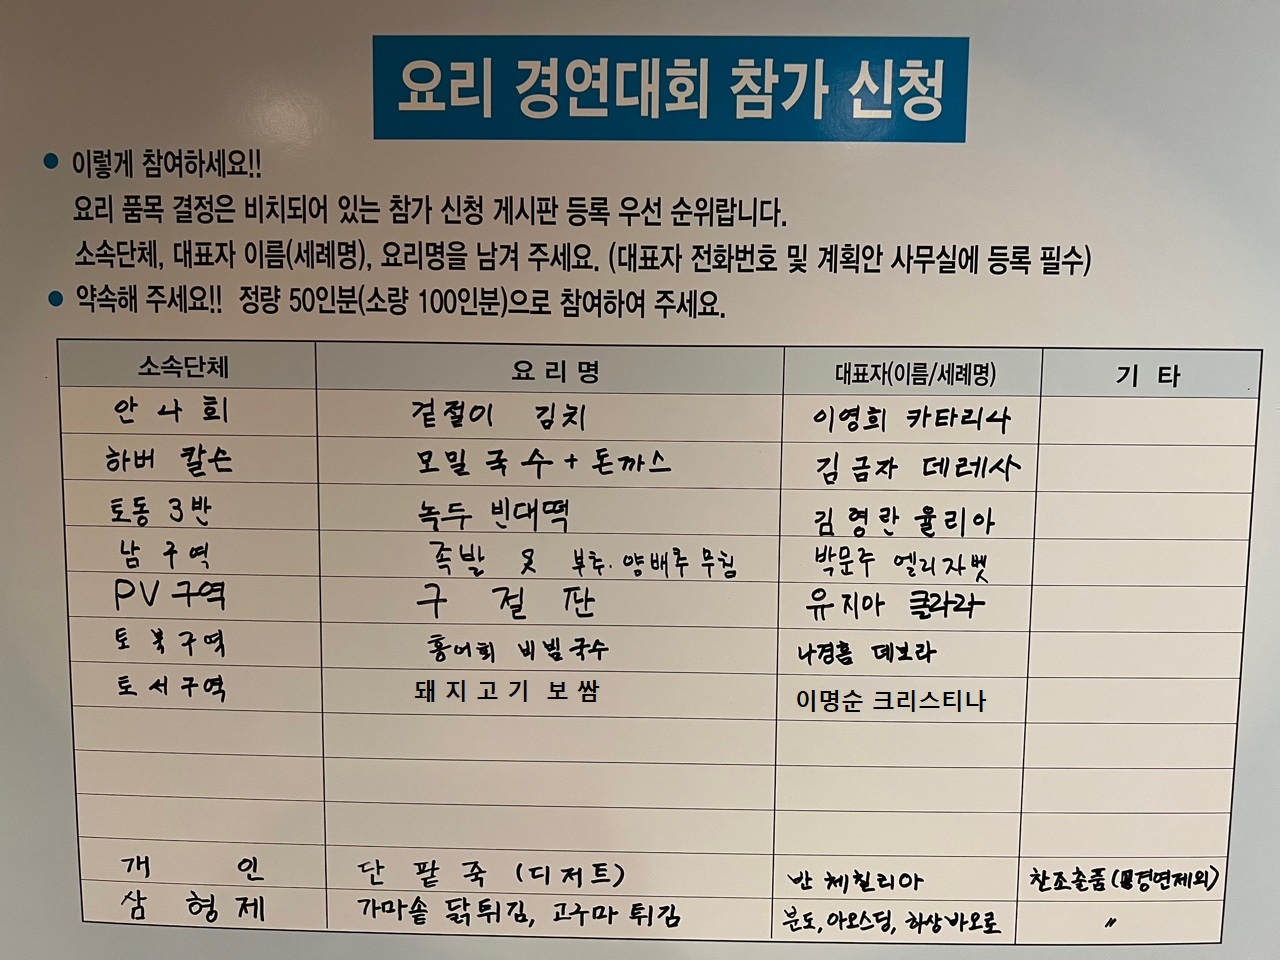 요리 경연대회 참가 신청
● 이렇게 참여하세요!!
요리 품목 결정은 비치되어 있는 참가 신청 게시판 등록 우선 순위랍니다.
소속단체, 대표자 이름(세례명), 요리명을 남겨 주세요. (대표자 전화번호 및 계획안 사무실에 등록 필수)
● 약속해 주세요!! 정량 50인분(소량 100인분)으로 참여하여 주세요.
소속단체 요리명 대표자(이름/세례명) 기타
안나회 겉절이 김치 이영희 카타리나
하버 칼슨 모밀국수+돈까스 김금자 데레사
토동 3반 녹두 빈대떡 김영란 율리아
남구역 족발 및 부추·양배추 무침 박문주 엘리자벳
PV구역 구절판 유지아 클라라
토북구역 홍어회 비빔국수 나경흠 데보라
토서구역 돼지고기 보쌈 이명순 크리스티나
개인 단팥죽 (디저트) 반 체칠리아 찬조출품(경연제외)
삼형제 가마솥 닭튀김, 고구마 튀김 분도, 아오스딩, 하상바오로 〃